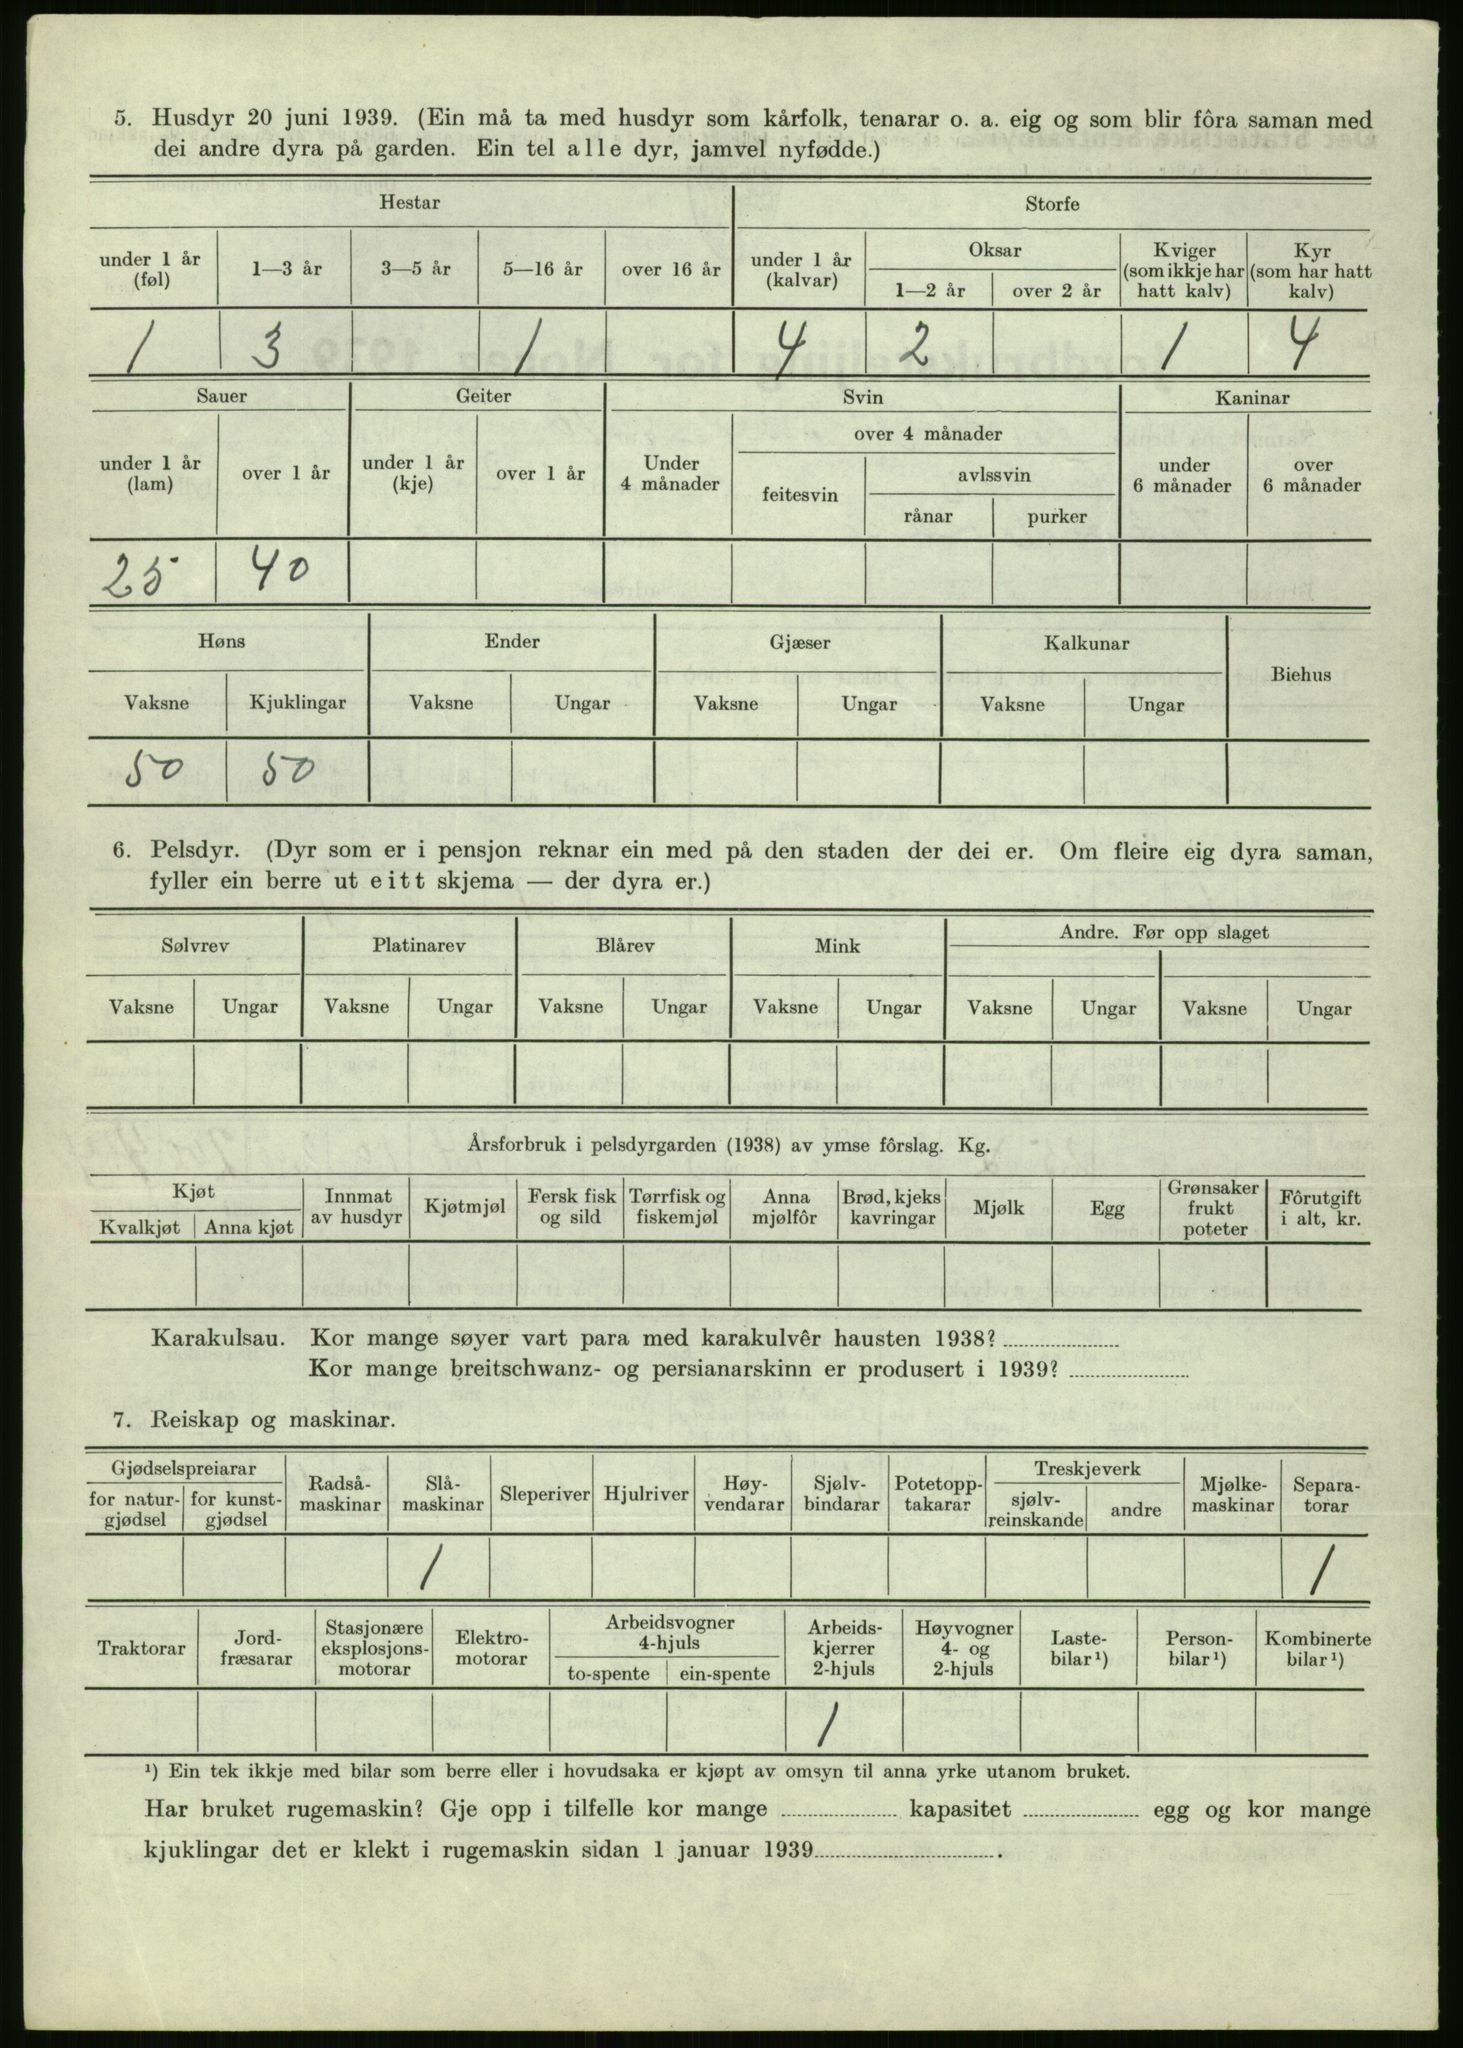 5. Husdyr 20 juni 1939. (Ein må ta med husdyr som kårfolk, tenarar o. a. eig og som blir fôra saman med
dei andre dyra på garden. Ein tel alle dyr, jamvel nyfødde.)
Hestar Storfe
under 1 år (føl) 1—3 år 3—5 år 5—16 år over 16 år under 1 år (kalvar) Oksar 1—2 år over 2 år Kviger (som ikkje har hatt kalv) Kyr (som har hatt kalv)
1 3 1 4 2 1 4
Sauer Geiter Svin Kaninar
over 4 månader
under 1 år (lam) over 1 år under 1 år (kje) over 1 år Under 4 månader feitesvin avlssvin rånar purker under 6 månader over 6 månader
25 40
Høns Ender Gjæser Kalkunar Biehus
Vaksne Kjuklingar Vaksne Ungar Vaksne Ungar Vaksne Ungar
50 50
6. Pelsdyr. (Dyr som er i pensjon reknar ein med på den staden der dei er. Om fleire eig dyra saman,
fyller ein berre ut eitt skjema — der dyra er.)
Sølvrev Platinarev Blårev Mink Andre. Før opp slaget
Vaksne Ungar Vaksne Ungar Vaksne Ungar Vaksne Ungar Vaksne Ungar Vaksne Ungar
Årsforbruk i pelsdyrgarden (1938) av ymse fôrslag. Kg.
Kjøt Kvalkjøt Anna kjøt Innmat av husdyr Kjøtmjøl Fersk fisk og sild Tørrfisk og fiskemjøl Anna mjølfôr Brød, kjeks kavringar Mjølk Egg Grønsaker frukt poteter Fôrutgift i alt, kr.
Karakulsau. Kor mange søyer vart para med karakulvêr hausten 1938?
Kor mange breitschwanz- og persianarskinn er produsert i 1939?
7. Reiskap og maskinar.
Gjødselspreiarar for natur-gjødsel for kunst-gjødsel Radså-maskinar Slå-maskinar Sleperiver Hjulriver Høy-vendarar Sjølv-bindarar Potetopp-takarar Treskjeverk sjølv-reinskande andre Mjølke-maskinar Separa-torar
1 1
Traktorar Jord-fræsarar Stasjonære eksplosjons-motorar Elektro-motorar Arbeidsvogner 4-hjuls to-spente ein-spente Arbeids-kjerrer 2-hjuls Høyvogner 4- og 2-hjuls Laste-bilar¹) Person-bilar¹) Kombinerte bilar¹)
1
¹) Ein tek ikkje med bilar som berre eller i hovudsaka er kjøpt av omsyn til anna yrke utanom bruket.
Har bruket rugemaskin? Gje opp i tilfelle kor mange kapasitet egg og kor mange
kjuklingar det er klekt i rugemaskin sidan 1 januar 1939 .